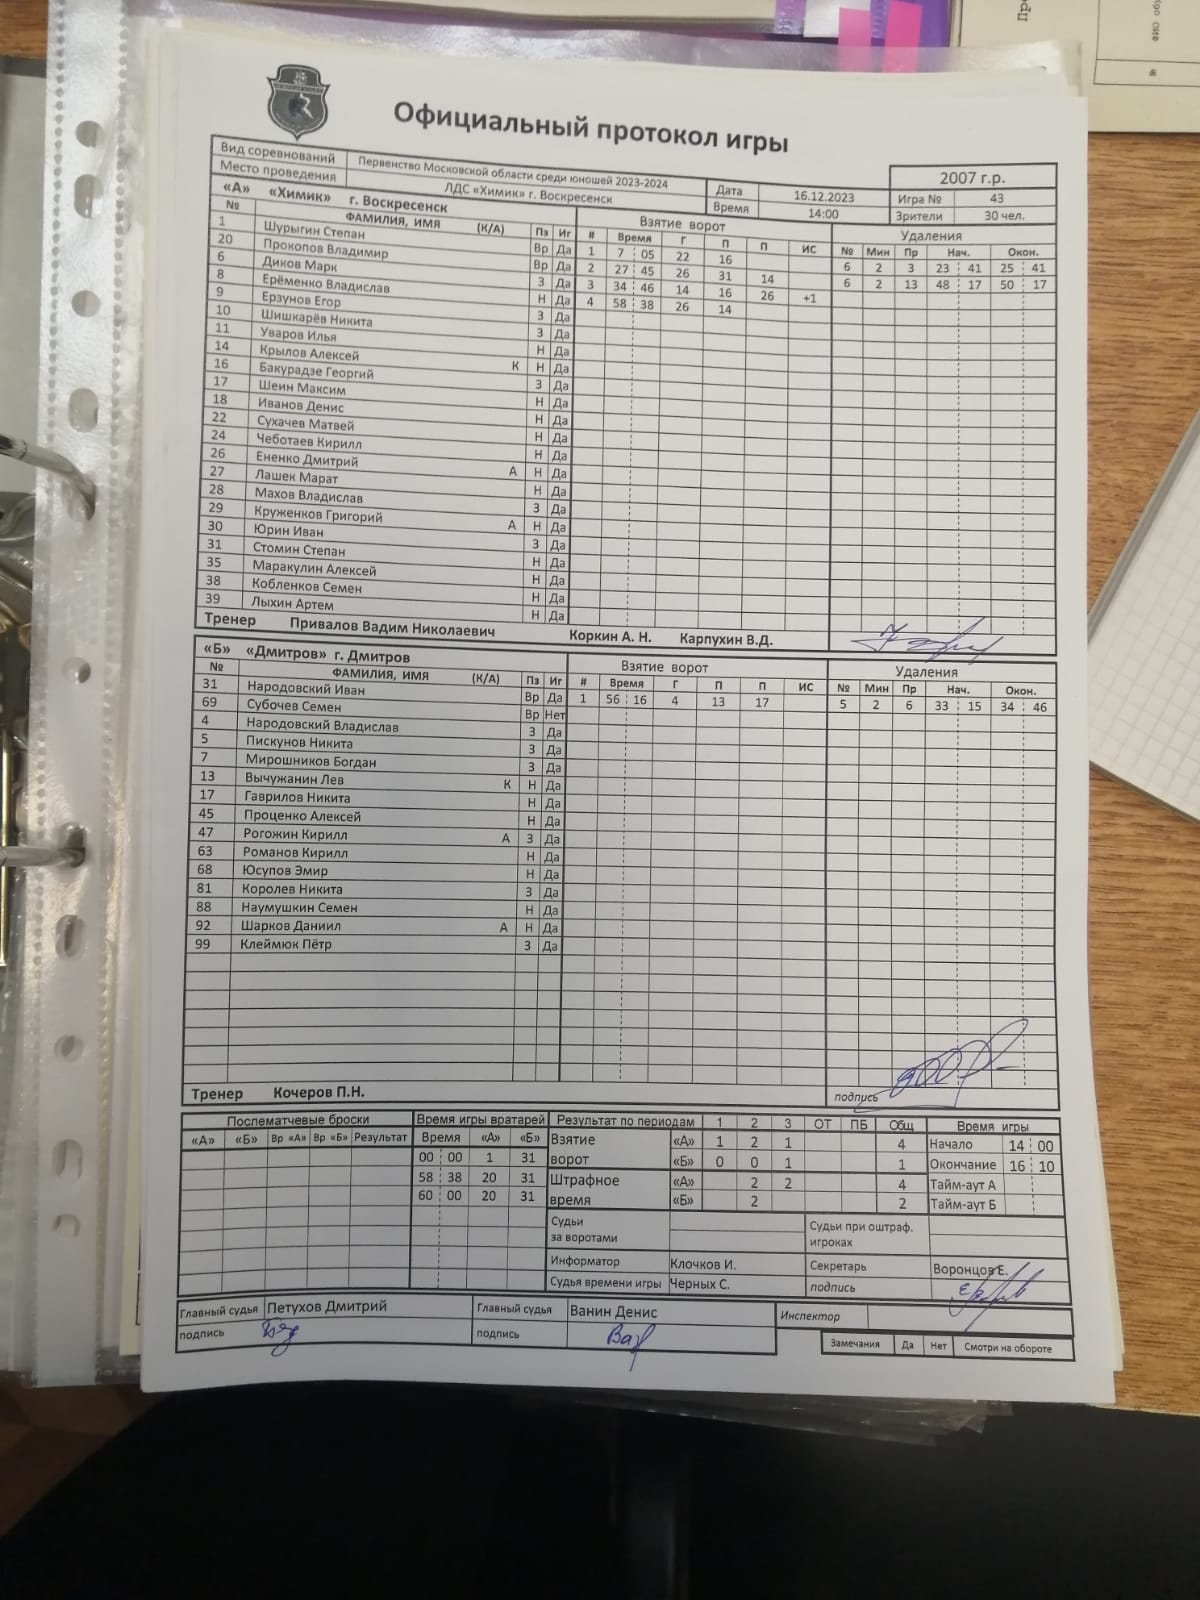 Официальный протокол игры
Вид соревнований Первенство Московской области среди юношей 2023-2024 2007 г.р.
Место проведения ЛДС «Химик» г. Воскресенск Дата 16.12.2023 Игра № 43
Время 14:00 Зрители 30 чел.
«А» «Химик» г. Воскресенск Взятие ворот Удаления
№ ФАМИЛИЯ, ИМЯ (К/А) Пз Иг # Время Г П П ИС № Мин Пр Нач. Окон.
1 Шурыгин Степан Вр Да 1 7 05 22 16 6 2 3 23 41 25 41
20 Прокопов Владимир Вр Да 2 27 45 26 31 14 6 2 13 48 17 50 17
6 Диков Марк З Да 3 34 46 14 16 26 +1
8 Ерёменко Владислав Н Да 4 58 38 26 14
9 Ерзунов Егор З Да
10 Шишкарёв Никита З Да
11 Уваров Илья Н Да
14 Крылов Алексей К Н Да
16 Бакурадзе Георгий З Да
17 Шеин Максим Н Да
18 Иванов Денис Н Да
22 Сухачев Матвей Н Да
24 Чеботаев Кирилл Н Да
26 Ененко Дмитрий А Н Да
27 Лашек Марат Н Да
28 Махов Владислав З Да
29 Круженков Григорий А Н Да
30 Юрин Иван З Да
31 Стомин Степан Н Да
35 Маракулин Алексей Н Да
38 Кобленков Семен Н Да
39 Лыхин Артем Н Да
Тренер Привалов Вадим Николаевич Коркин А. Н. Карпухин В.Д.
«Б» «Дмитров» г. Дмитров Взятие ворот Удаления
№ ФАМИЛИЯ, ИМЯ (К/А) Пз Иг # Время Г П П ИС № Мин Пр Нач. Окон.
31 Народовский Иван Вр Да 1 56 16 4 13 17 5 2 6 33 15 34 46
69 Субочев Семен Вр Нет
4 Народовский Владислав З Да
5 Пискунов Никита З Да
7 Мирошников Богдан З Да
13 Вычужанин Лев К Н Да
17 Гаврилов Никита Н Да
45 Проценко Алексей Н Да
47 Рогожин Кирилл А З Да
63 Романов Кирилл Н Да
68 Юсупов Эмир Н Да
81 Королев Никита З Да
88 Наумушкин Семен Н Да
92 Шарков Даниил А Н Да
99 Клеймюк Пётр З Да
Тренер Кочеров П.Н. подпись
Послематчевые броски Время игры вратарей Результат по периодам 1 2 3 ОТ ПБ Общ Время игры
«А» «Б» Вр «А» Вр «Б» Результат Время «А» «Б» Взятие ворот «А» 1 2 1 4 Начало 14 00
00 00 1 31 «Б» 0 0 1 1 Окончание 16 10
58 38 20 31 Штрафное время «А» 2 2 4 Тайм-аут А
60 00 20 31 «Б» 2 2 Тайм-аут Б
Судьи за воротами Судьи при оштраф. игроках
Информатор Клочков И. Секретарь Воронцов Е.
Судья времени игры Черных С. подпись
Главный судья Петухов Дмитрий Главный судья Ванин Денис Инспектор
подпись подпись
Замечания Да Нет Смотри на обороте